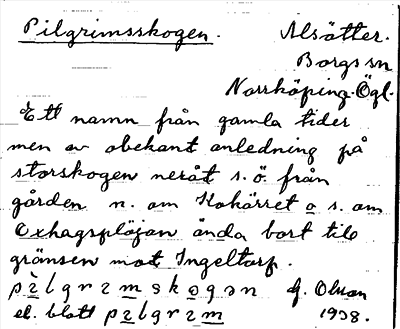 Pilgrimsskogen. Alsätter.
Borgs sn
Norrköping. Ögl.
Ett namn från gamla tider
men av obekant anledning på
storskogen neråt s.ö. från
gården n. om Kokärret o s. om
Oxhagsplöjan ända bort till
gränsen mot Ingeltorp.
G. Olson
el. blott
1938.